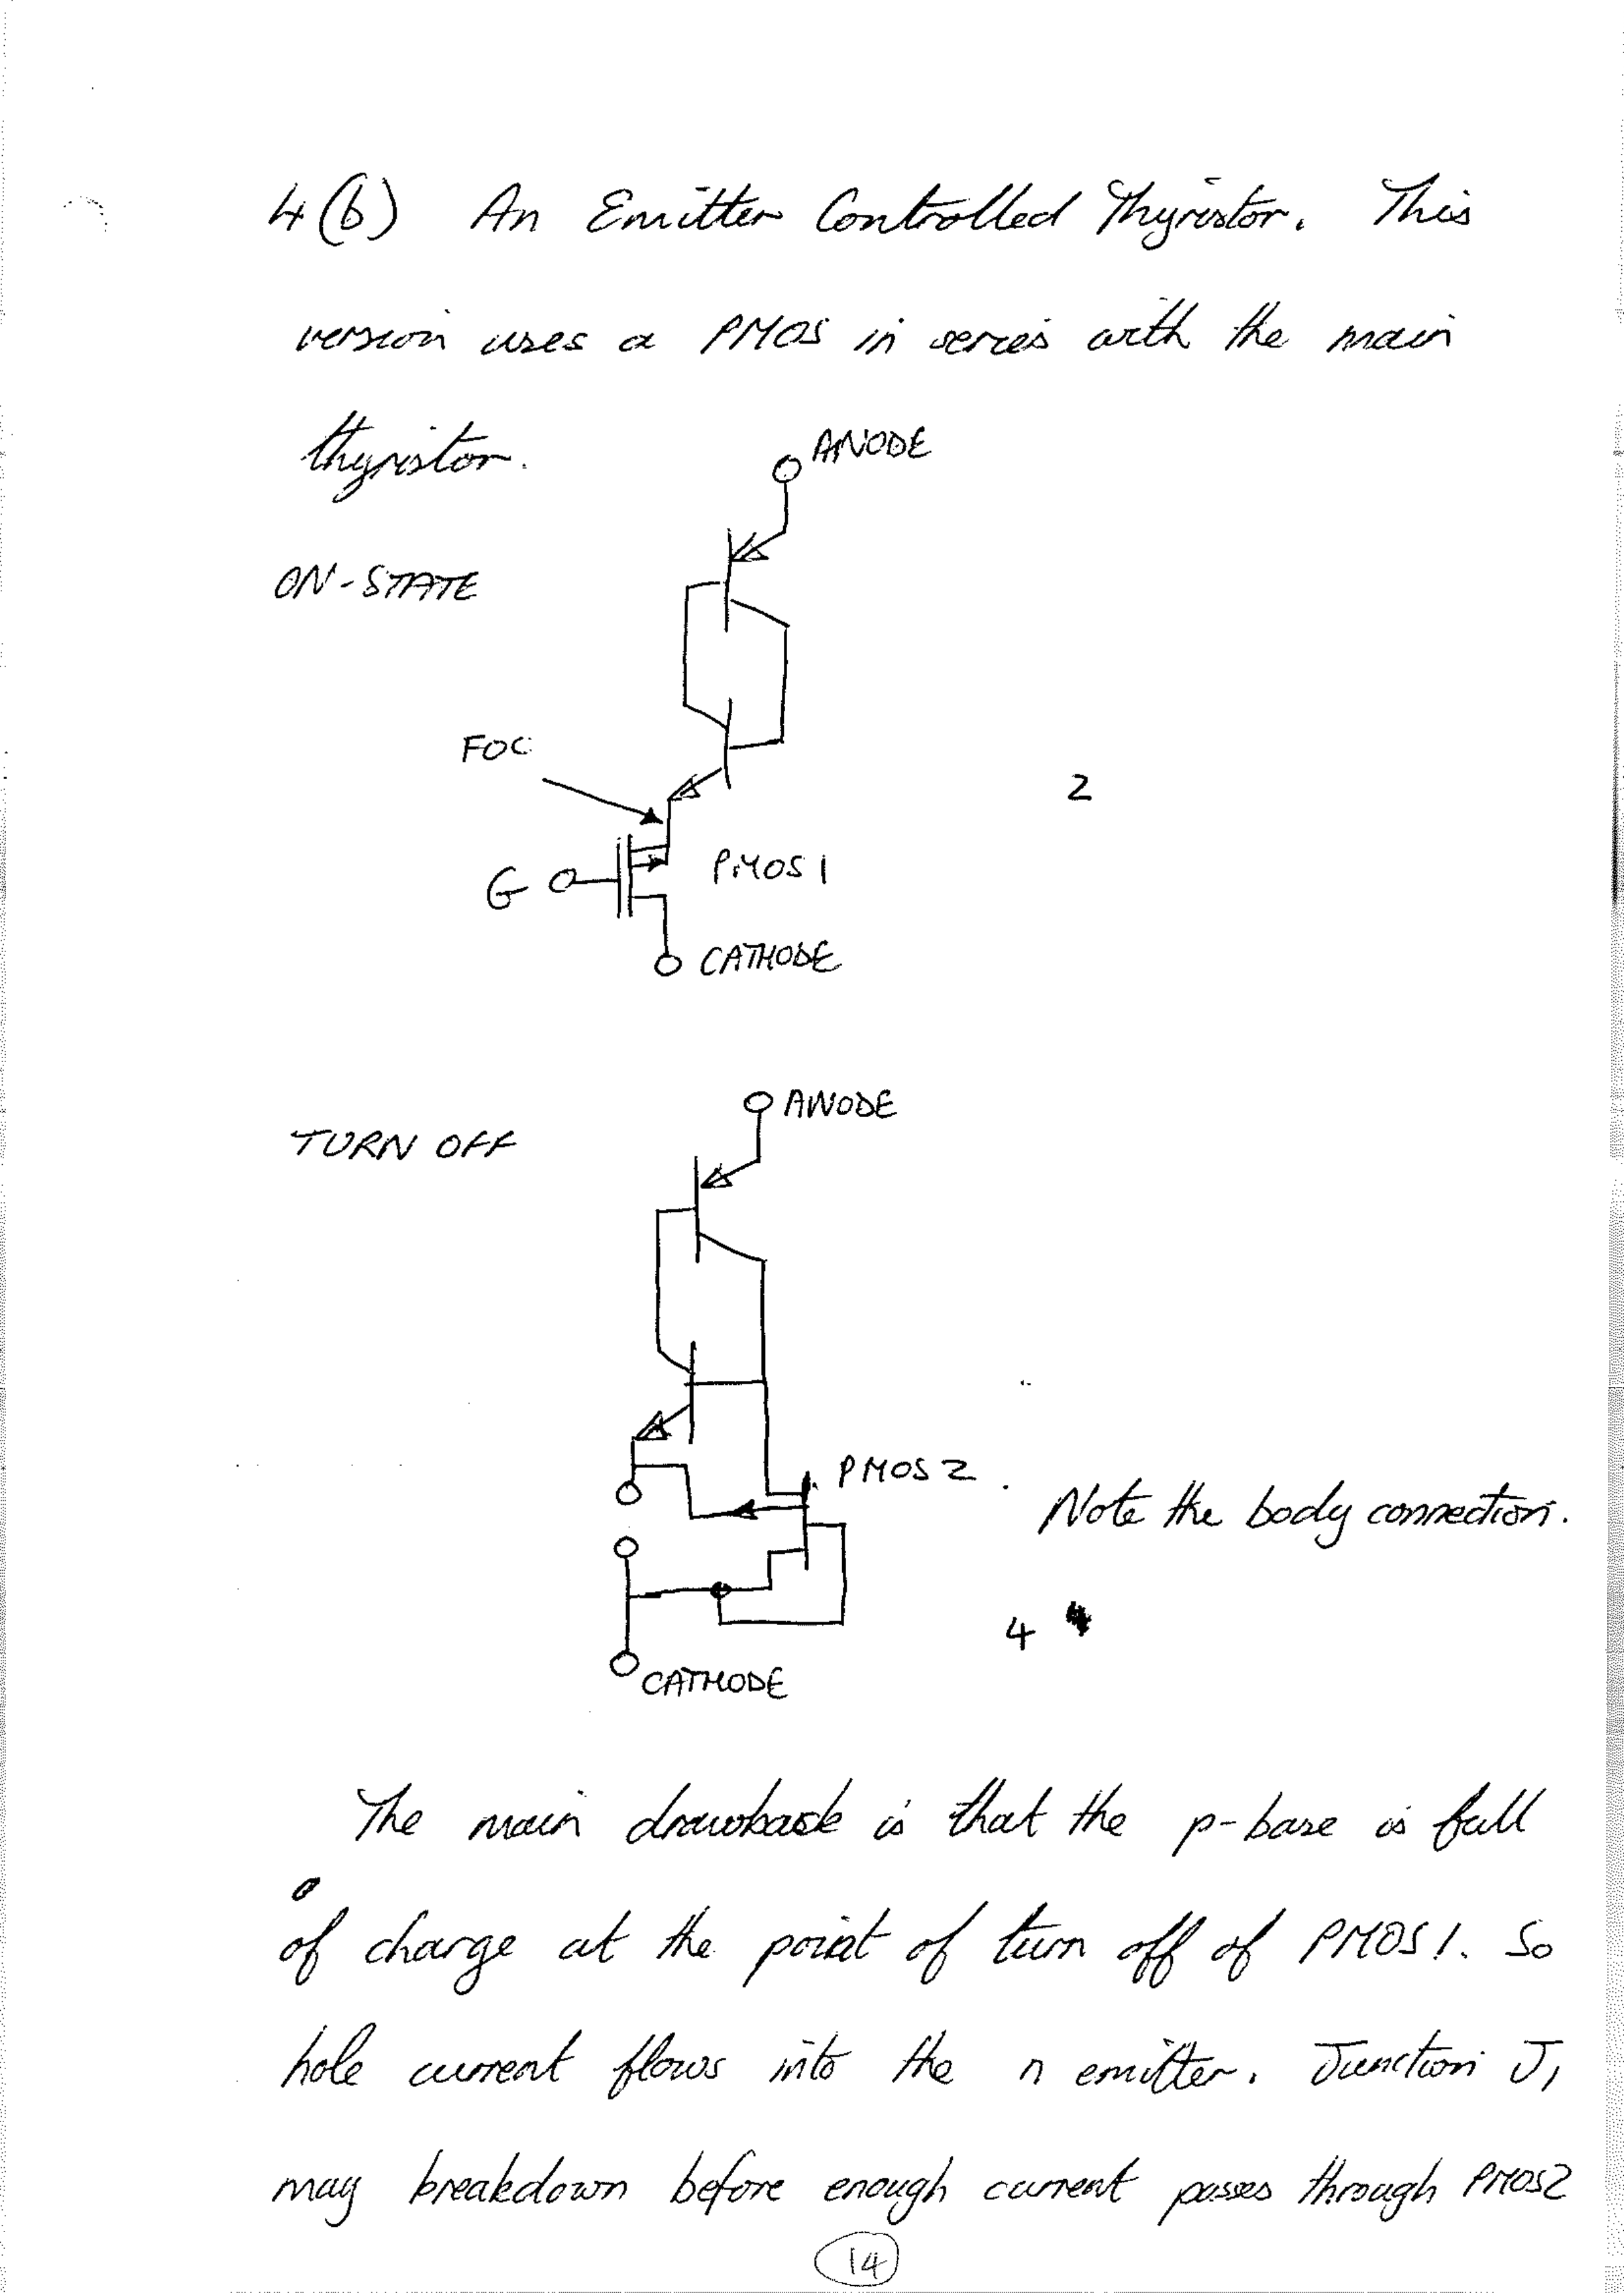 4(b) An Emitter Controlled Thyristor. This
version uses a PMOS in series with the main
thyristor.
ANODE
ON-STATE
FOC
2
G
PMOS 1
CATHODE
ANODE
TURN OFF
PMOS 2
Note the body connection.
4
CATHODE
The main drawback is that the p-base is full
of charge at the point of turn off of PMOS1. So
hole current flows into the n emitter. Junction J1
may breakdown before enough current passes through PMOS2
14